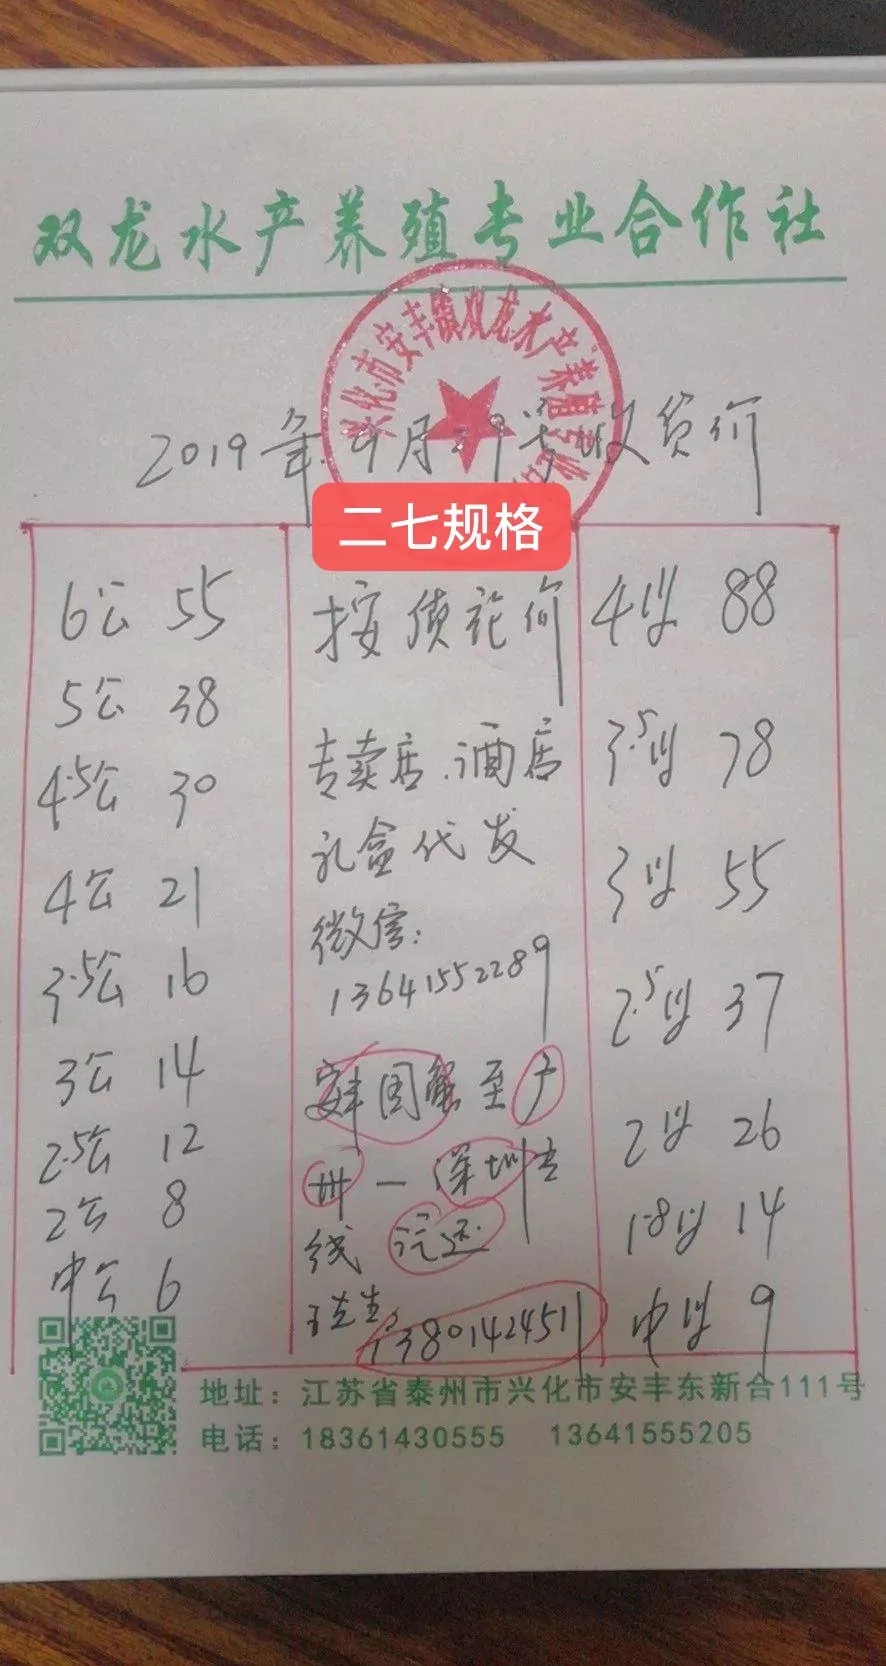 双龙水产养殖专业合作社
兴化市安丰镇双龙水产养殖专业
2019年9月29号收货价
二七规格
6公 55
5公 38
4.5公 30
4公 21
3.5公 16
3公 14
2.5公 12
2公 8
中公 6
按质论价
专卖店、酒店
礼盒代发
微信:
13641552289
安丰围蟹至广
州一深圳专
线汽运
王先生
13801424511
4母 88
3.5母 78
3母 55
2.5母 37
2母 26
1.8母 14
中母 9
地址：江苏省泰州市兴化市安丰东新合111号
电话：18361430555 13641555205